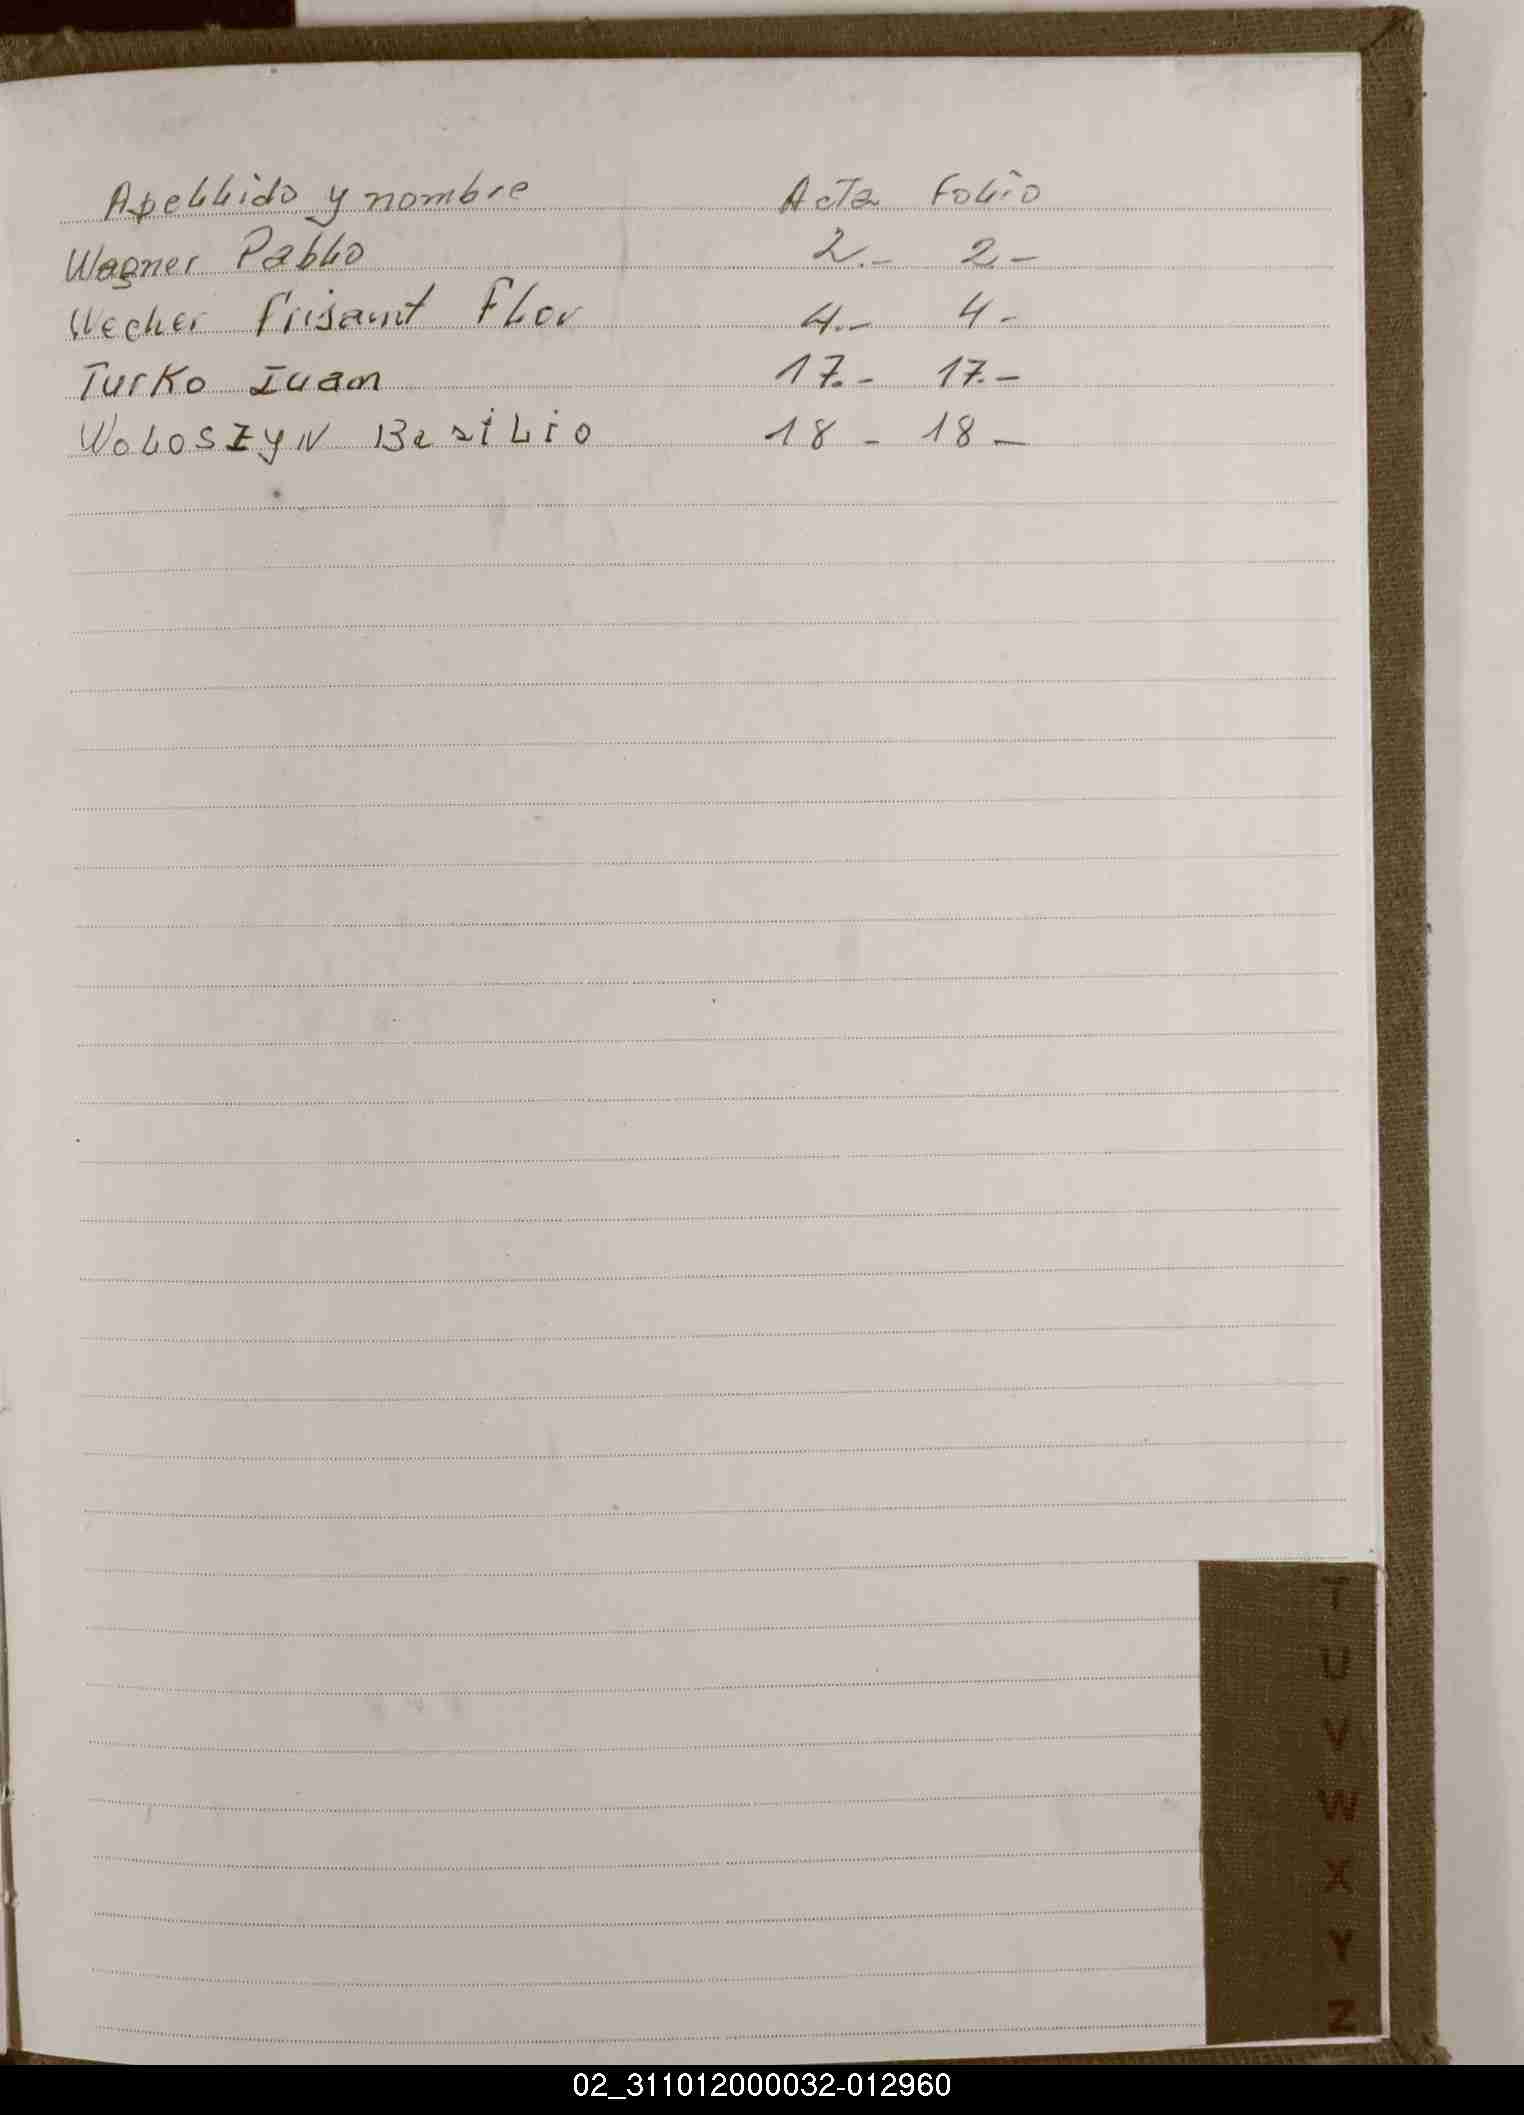 Apellido y nombre Acta Folio
Wagner Pablo 2.- 2-
Wecher Flor 4.- 4-
Turko Iuan 17.- 17.-
WoloszyN Basilio 18- 18-
T
U
V
W
X
Y
Z
02_311012000032-012960